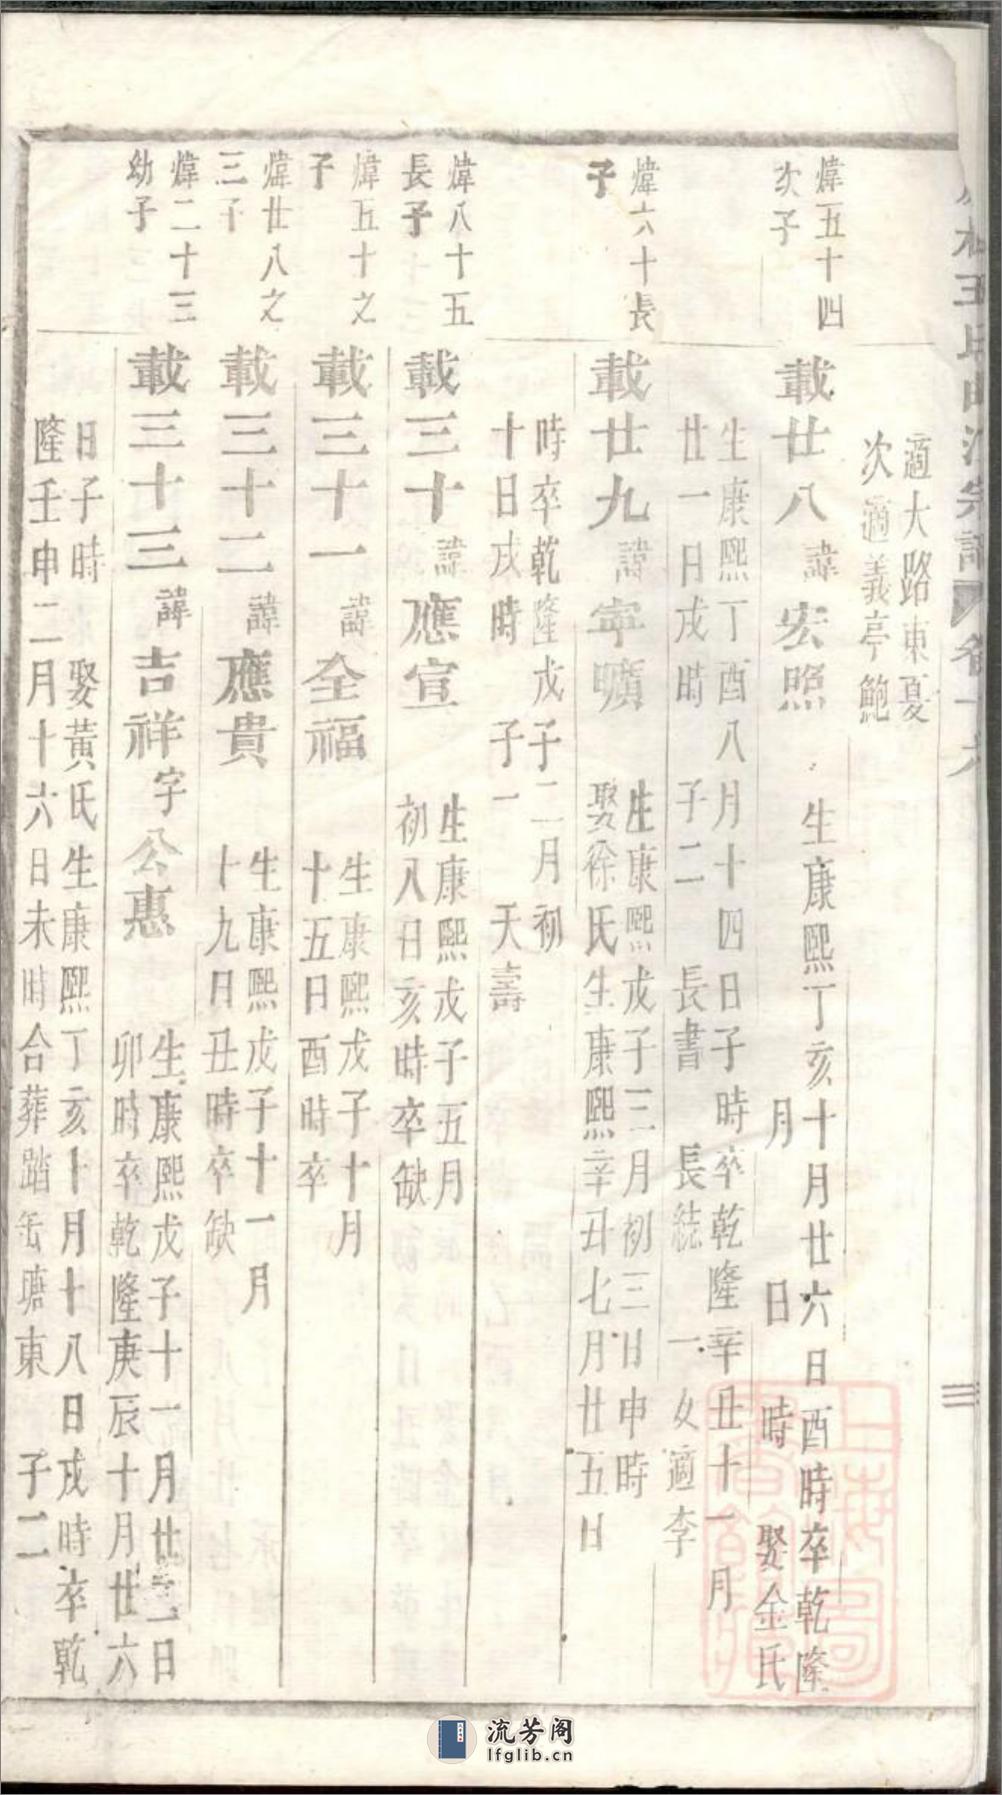 適大路東夏
次適義亭鮑
煒五十四
次子
載廿八諱宏照
生康熙丁亥十月廿六日酉時卒乾隆
月 日 時 娶金氏
生康熙丁酉八月十四日子時卒乾隆辛丑十一月
廿一日戌時 子二 長書 長統 一女適李
煒六十長
子
載廿九諱寧曠
生康熙戊子三月初三日申時
娶徐氏生康熙辛丑七月廿五日
時卒乾隆戊子二月初
十日戌時 子一 天壽
煒八十五
長子
載三十諱應宣
生康熙戊子五月
初八日亥時卒缺
煒五十之
子
載三十一諱全福
生康熙戊子十月
十五日酉時卒
煒廿八之
三子
載三十二諱應貴
生康熙戊子十一月
十九日丑時卒缺
煒二十三
幼子
載三十三諱吉祥字公惠
生康熙戊子十一月廿二日
卯時卒乾隆庚辰十月廿六
日子時 娶黃氏生康熙丁亥十月十八日戌時卒乾
隆壬申二月十六日未時合葬踏缶塘東 子二
王氏 宗譜 卷十六
三
上海圖書館藏
流芳阁
lfglib.cn